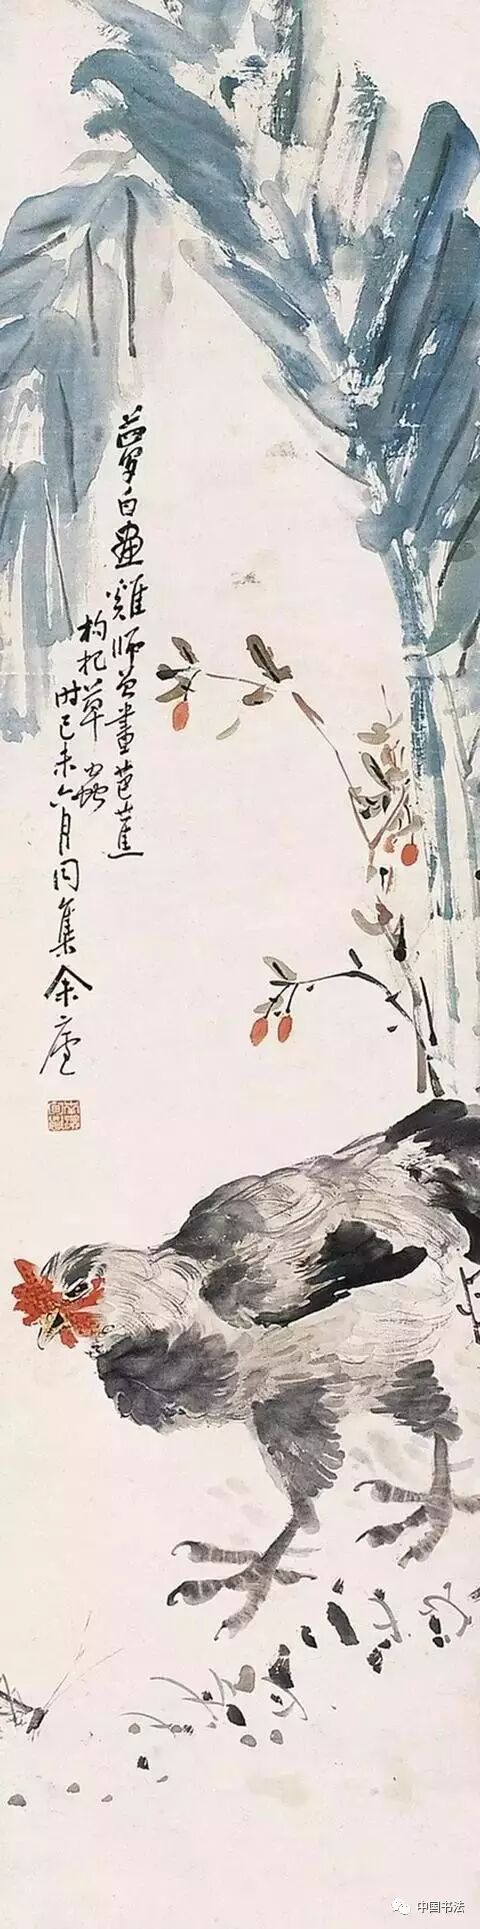 夢白畫雞師曾畫芭蕉
枸杞草蟲
时己未六月同集余廬
中国书法